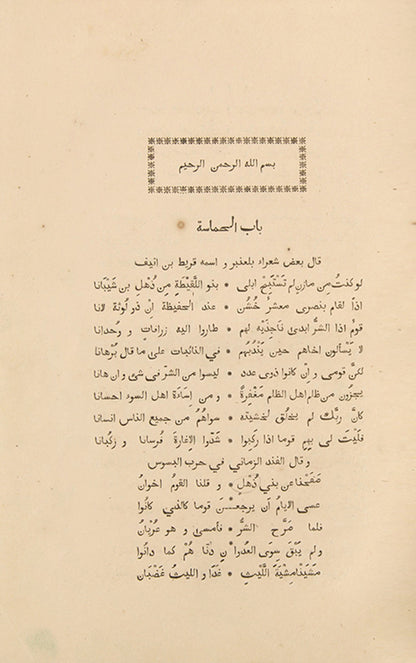 بسم الله الرحمن الرحيم
باب الحماسة
قال بعض شعراء بلعنبر و اسمه قريط بن انيف
لو كنتُ من مازنٍ لم تَسْتَبِحْ ابلى * بنو اللَّقِيْطَةِ مِن ذُهْلِ بن شَيْبَانا
اذاً لقام بنصرى معشرٌ خُشُن * عند الحفيظة اِنْ ذو لُوثة لانا
قومٌ اذا الشرُّ ابدى نَاجِذَيْهِ لهم * طاروا اليه زرافاتٍ و وُحدانا
لا يَسْألون اخاهم حين يَنْدُبهُم * في النائبات على ما قال بُرْهانا
لكنّ قومى و اِنْ كانوا ذوى عدد * ليسوا من الشرِّ فى شئٍ و اِن هانا
يجزون من ظلم اهل الظلم مَغْفِرةً * و من اِسَاءَة اهل السوء احسانا
كأنّ ربَّك لم يخلق لخشيته * سواهُمُ من جميع الناس انسانا
فلَيتَ لى بِهِمِ قوما اذا ركِبوا * شَدُّوا الاِغارةَ فُرسانا و رُكبانا
و قال الفند الزمانى في حرب البسوس
صَفَحْنا عن بني ذُهْلٍ * و قلنا القومُ اخوانُ
عسى الايامُ أن يرجعـــنَ قوما كالذي كانُوا
فلما صَرَّحَ الشرُّ * فأمسى و هو عُرْيَانُ
ولم يَبْقَ سوى العُدوا نِ دِنّا هُمْ كما دانُوا
مَشَيْنَا مِشْيَةَ اللَّيْثِ * غَدَا و الليثُ غَضْبَان